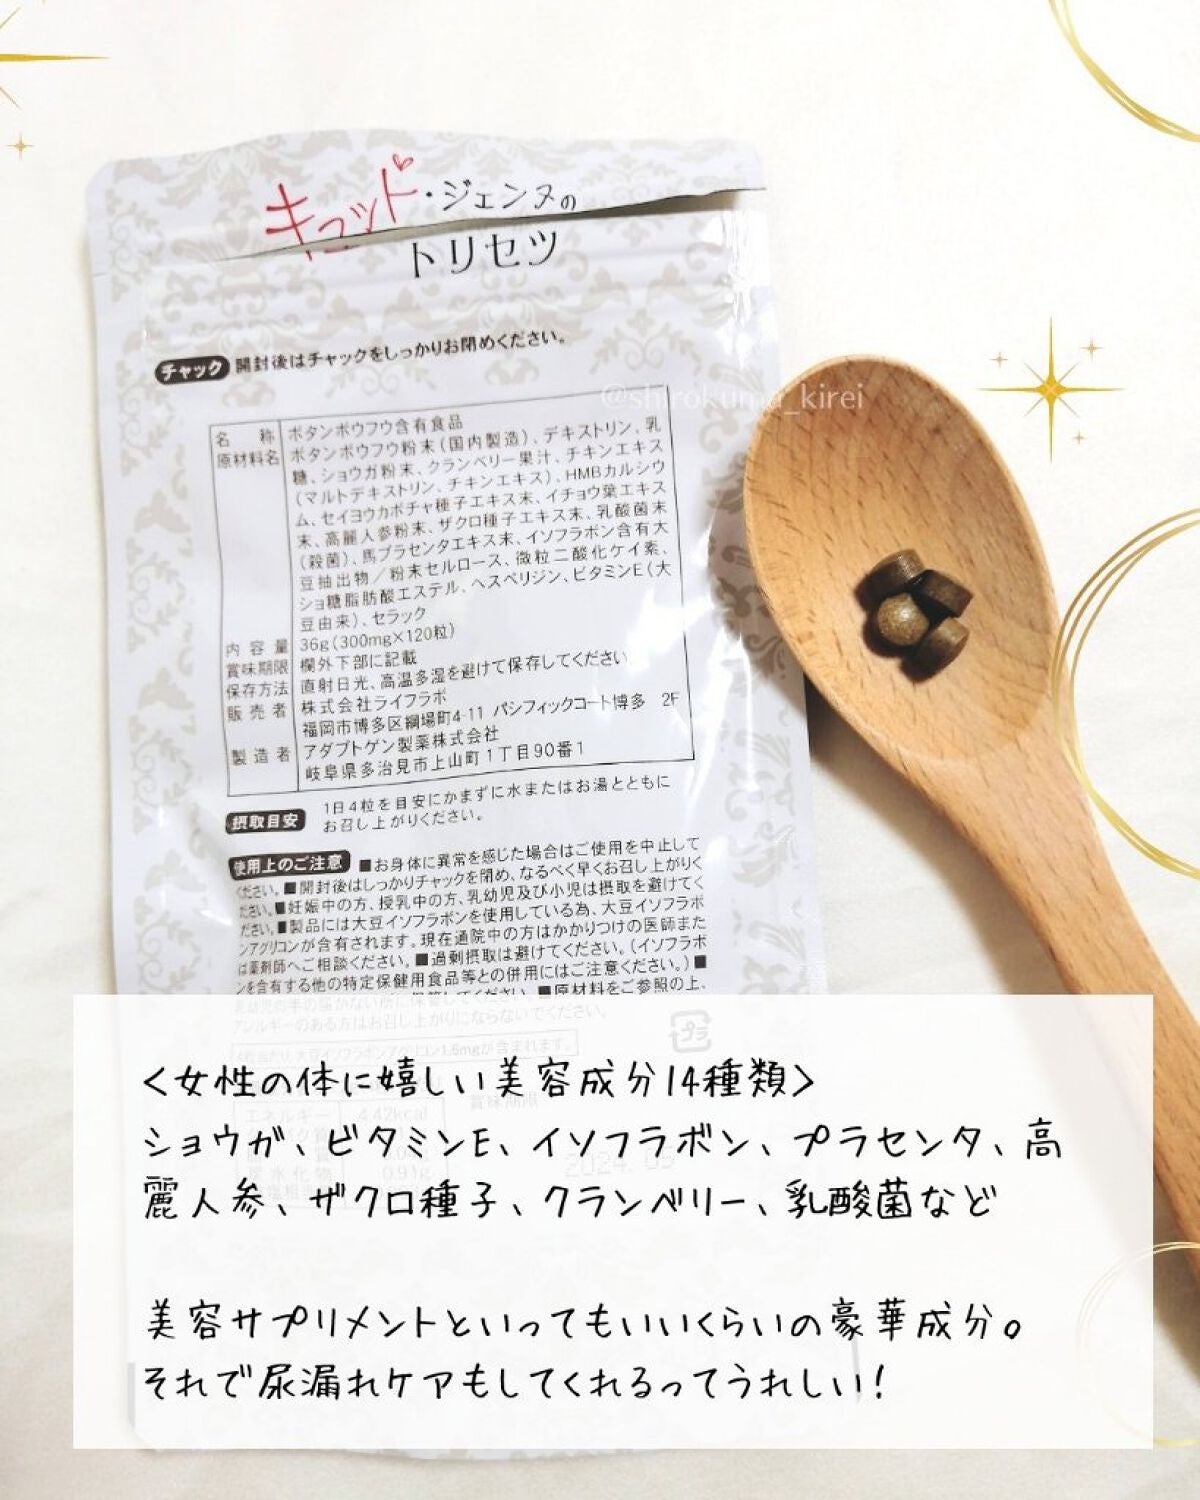 キュッド・ジェンヌの
トリセツ
チャック 開封後はチャックをしっかりお閉めください。
@shirokuma_kirei
名称 ボタンボウフウ含有食品
原材料名 ボタンボウフウ粉末(国内製造)、デキストリン、乳
糖、ショウガ粉末、クランベリー果汁、チキンエキス
(マルトデキストリン、チキンエキス)、HMBカルシウ
ム、セイヨウカボチャ種子エキス末、イチョウ葉エキス
末、高麗人参粉末、ザクロ種子エキス末、乳酸菌末
(殺菌)、馬プラセンタエキス末、イソフラボン含有大
豆抽出物/粉末セルロース、微粒二酸化ケイ素、
ショ糖脂肪酸エステル、ヘスペリジン、ビタミンE(大
豆由来)、セラック
内容量 36g(300mg×120粒)
賞味期限 欄外下部に記載
保存方法 直射日光、高温多湿を避けて保存してください
販売者 株式会社ライフラボ
福岡市博多区綱場町4-11 パシフィックコート博多 2F
製造者 アダプトゲン製薬株式会社
岐阜県多治見市上山町1丁目90番1
摂取目安 1日4粒を目安にかまずに水またはお湯とともに
お召し上がりください。
使用上のご注意 ■お身体に異常を感じた場合はご使用を中止して
ください。■開封後はしっかりチャックを閉め、なるべく早くお召し上がりく
ださい。■妊娠中の方、授乳中の方、乳幼児及び小児は摂取を避けてく
ださい。■製品には大豆イソフラボンを使用している為、大豆イソフラボ
ンアグリコンが含有されます。現在通院中の方はかかりつけの医師また
は薬剤師へご相談ください。■過剰摂取は避けてください。(イソフラボ
ンを含有する他の特定保健用食品等との併用にはご注意ください。)■
乳幼児の手の届かない所に保管してください。■原材料をご参照の上、
アレルギーのある方はお召し上がりにならないでください。
プラ
4粒当たり 大豆イソフラボンアグリコン1.6mgが含まれます。
<女性の体に嬉しい美容成分14種類>
エネルギー 4.42kcal
賞味期限
ショウガ、ビタミンE、イソフラボン、プラセンタ、高
炭水化物 0.91g
麗人参、ザクロ種子、クランベリー、乳酸菌など
美容サプリメントといってもいいくらいの豪華成分。
それで尿漏れケアもしてくれるってうれしい!